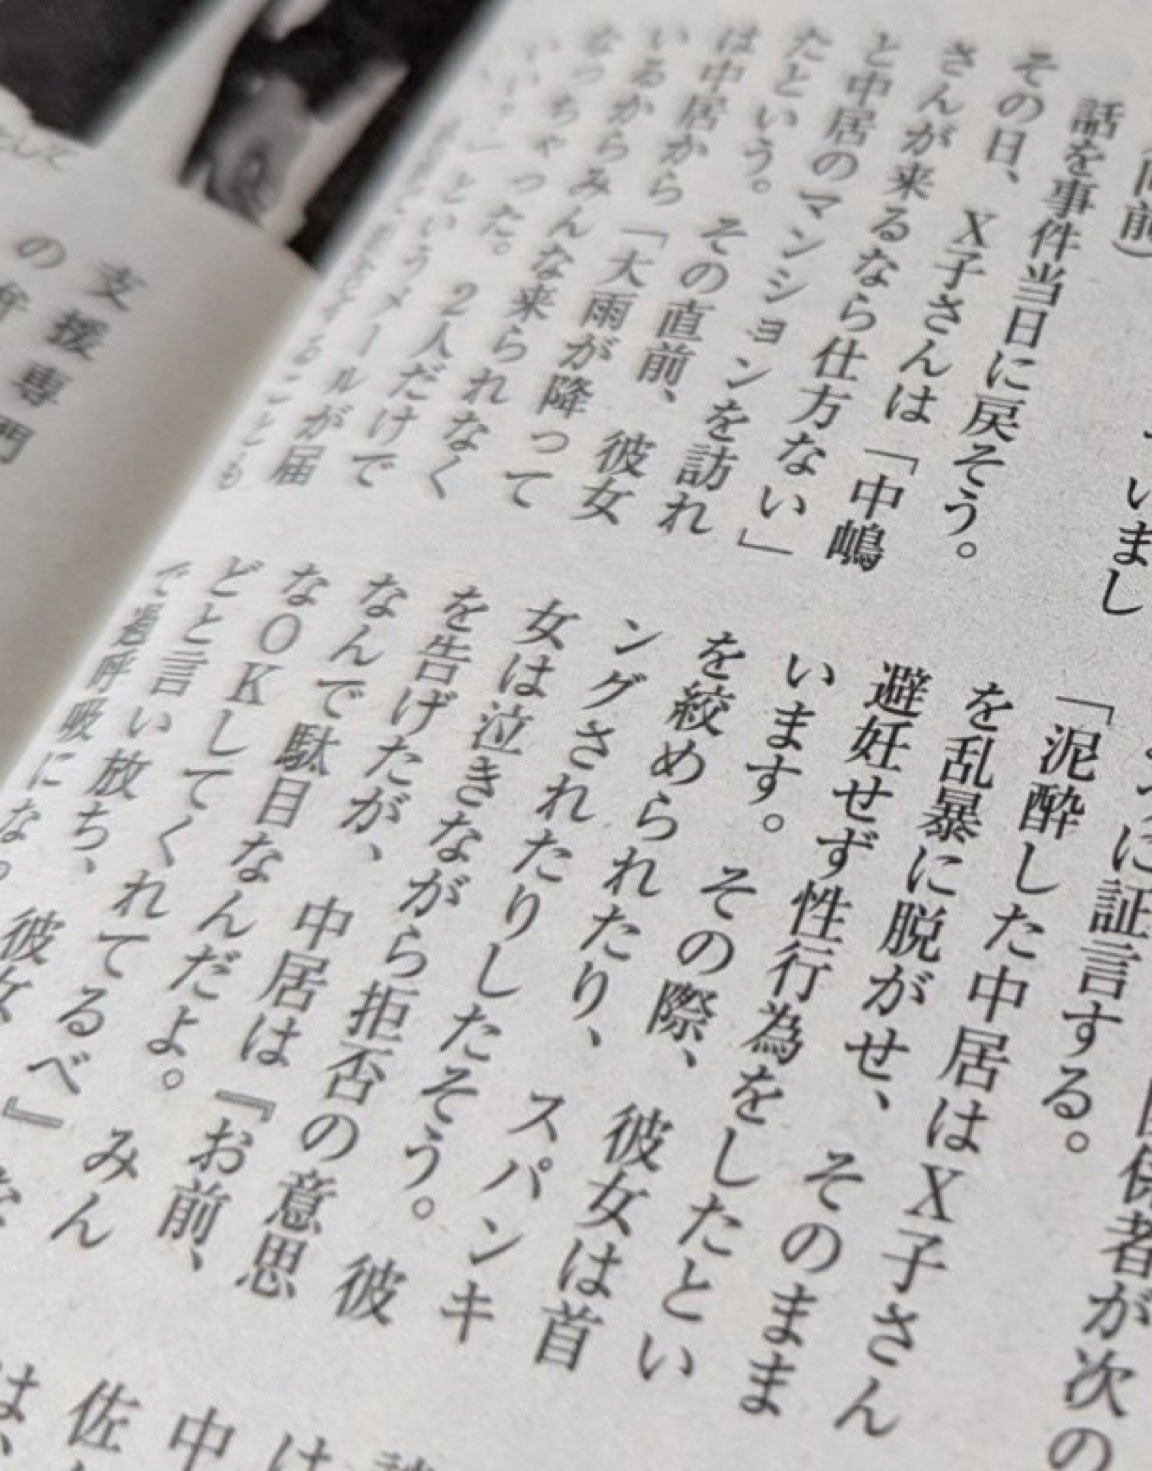 いまし
話を事件当日に戻そう。
その日、X子さんは「中嶋
さんが来るなら仕方ない」
と中居のマンションを訪れ
たという。その直前、彼女
は中居から「大雨が降って
いるからみんな来られなく
なっちゃった。2人だけで
いい?」というメールが届
ることも
関係者が次の
ように証言する。
「泥酔した中居はX子さん
を乱暴に脱がせ、そのまま
避妊せず性行為をしたとい
います。その際、彼女は首
を絞められたり、スパンキ
ングされたりしたそう。彼
女は泣きながら拒否の意思
を告げたが、中居は『お前、
なんで駄目なんだよ。みん
なOKしてくれてるべ』な
どと言い放ち、彼女
で過呼吸にな
支援専門
の弁
として